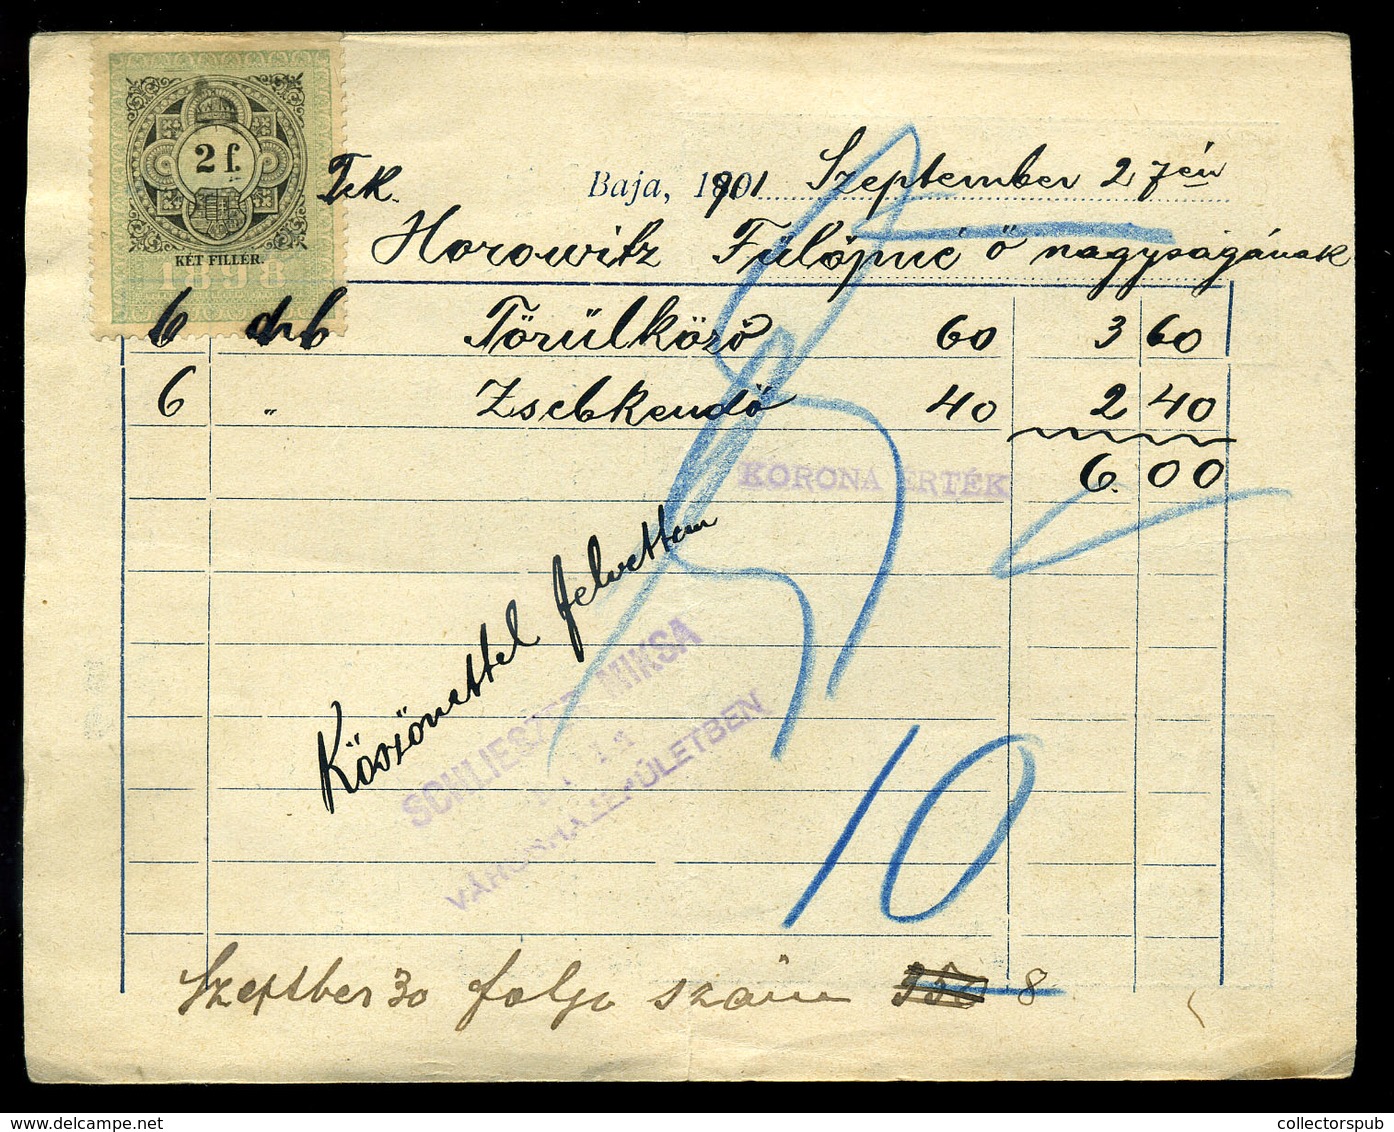 2 f.
KÉT FILLÉR.
1898
Tek. Baja, 1901 Szeptember 27én
Horowitz Fülöpné ő nagyságának
6 drb Törülköző 60 3 60
6 " Zsebkendő 40 2 40
KORONA ÉRTÉK 6.00
Köszönettel felvettem
SCHLIESZER MIKSA
BAJA
VÁROSHÁZ ÉPÜLETBEN
10
Szeptber 30 folyo szám 8
collectorspub